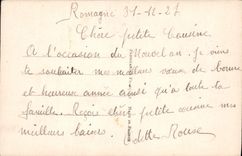 Romagné 31-12-27
Chère petite Cousine
A l'occasion du Nouvel an. Je viens
te souhaiter mes meilleurs voeux de bonne
et heureuse année ainsi qu'à toute la
famille. Reçois chère petite cousine mes
meilleurs baisers. Odette